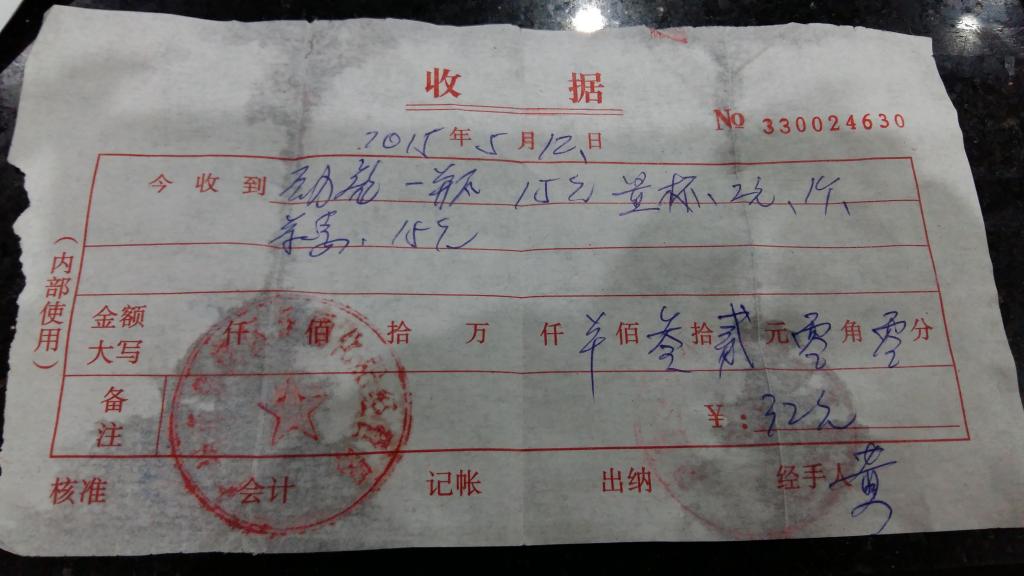 收 据
No 330024630
2015年5月12日
今收到 一瓶 15元 量杯、2元、1个、
15元
(内部使用)
金额大写 仟 佰 拾 万 仟 佰叁拾贰元零角零分
备注 ¥:32元
核准 会计 记帐 出纳 经手人 黄